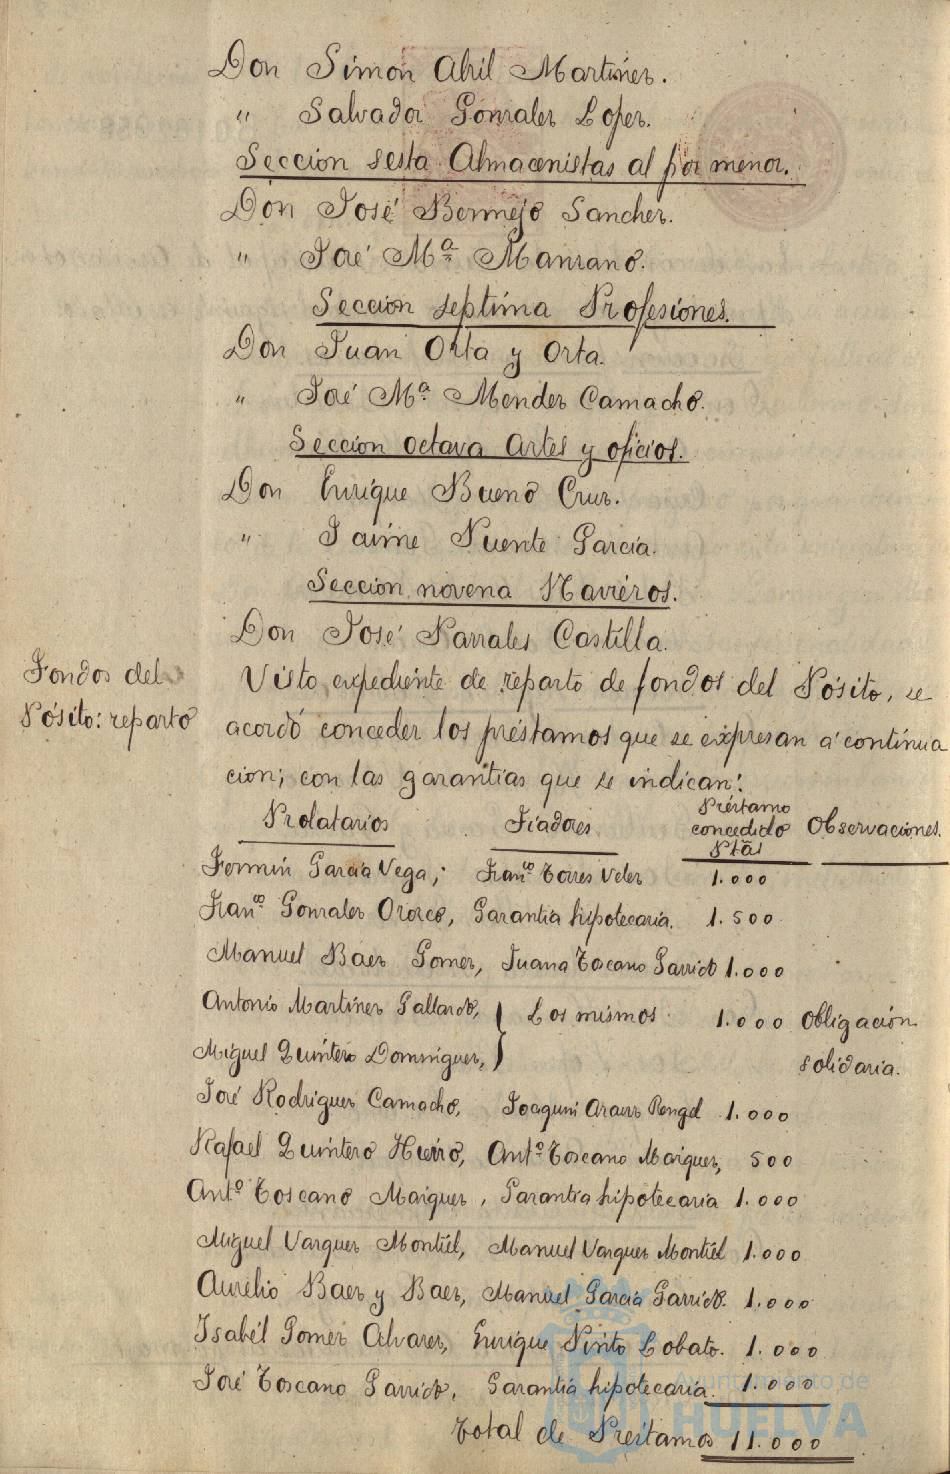 Don Simón Abril Martínez.
" Salvador Gonzalez Lopez.
Seccion sesta Almacenistas al por menor.
Don José Bermejo Sanchez.
" José Mª Manzano.
Seccion septima Profesiones.
Don Juan Orta y Orta.
" José Mª Mendez Camacho.
Seccion octava Artes y oficios.
Don Enrique Bueno Cruz.
" Jaime Puente García.
Seccion novena Navieros.
Don José Parrales Castilla.
Fondos del
Pósito: reparto
Visto, expediente de reparto de fondos del Pósito, se
acordó conceder los préstamos que se expresan á continua
cion; con las garantias que se indican:
Prolatarios Fiadores Préstamo concedido Ptas Observaciones.
Fermín García Vega; Franco Torres Velez 1.000
Franco Gonzalez Orozco, Garantía hipotecaria. 1.500
Manuel Baez Gomez, Juana Toscano Garrido 1.000
Antonio Martínez Gallardo, } Los mismos 1.000 Obligación
Miguel Quintero Dominguez, solidaria.
José Rodriguez Camacho, Joaquin Rengel 1.000
Rafael Quintero Hierro, Antº Toscano Maiquez, 500
Antº Toscano Maiquez, Garantía hipotecaria 1.000
Miguel Vazquez Montiel, Manuel Vazquez Montiel 1.000
Aurelio Baez y Baez, Manuel García Garrido. 1.000
Isabél Gomez Alvarez, Enrique Pinto Lobato. 1.000
José Toscano Garrido, Garantía hipotecaria. 1.000
Total de Préstamos 11.000
Ayuntamiento de
HUELVA